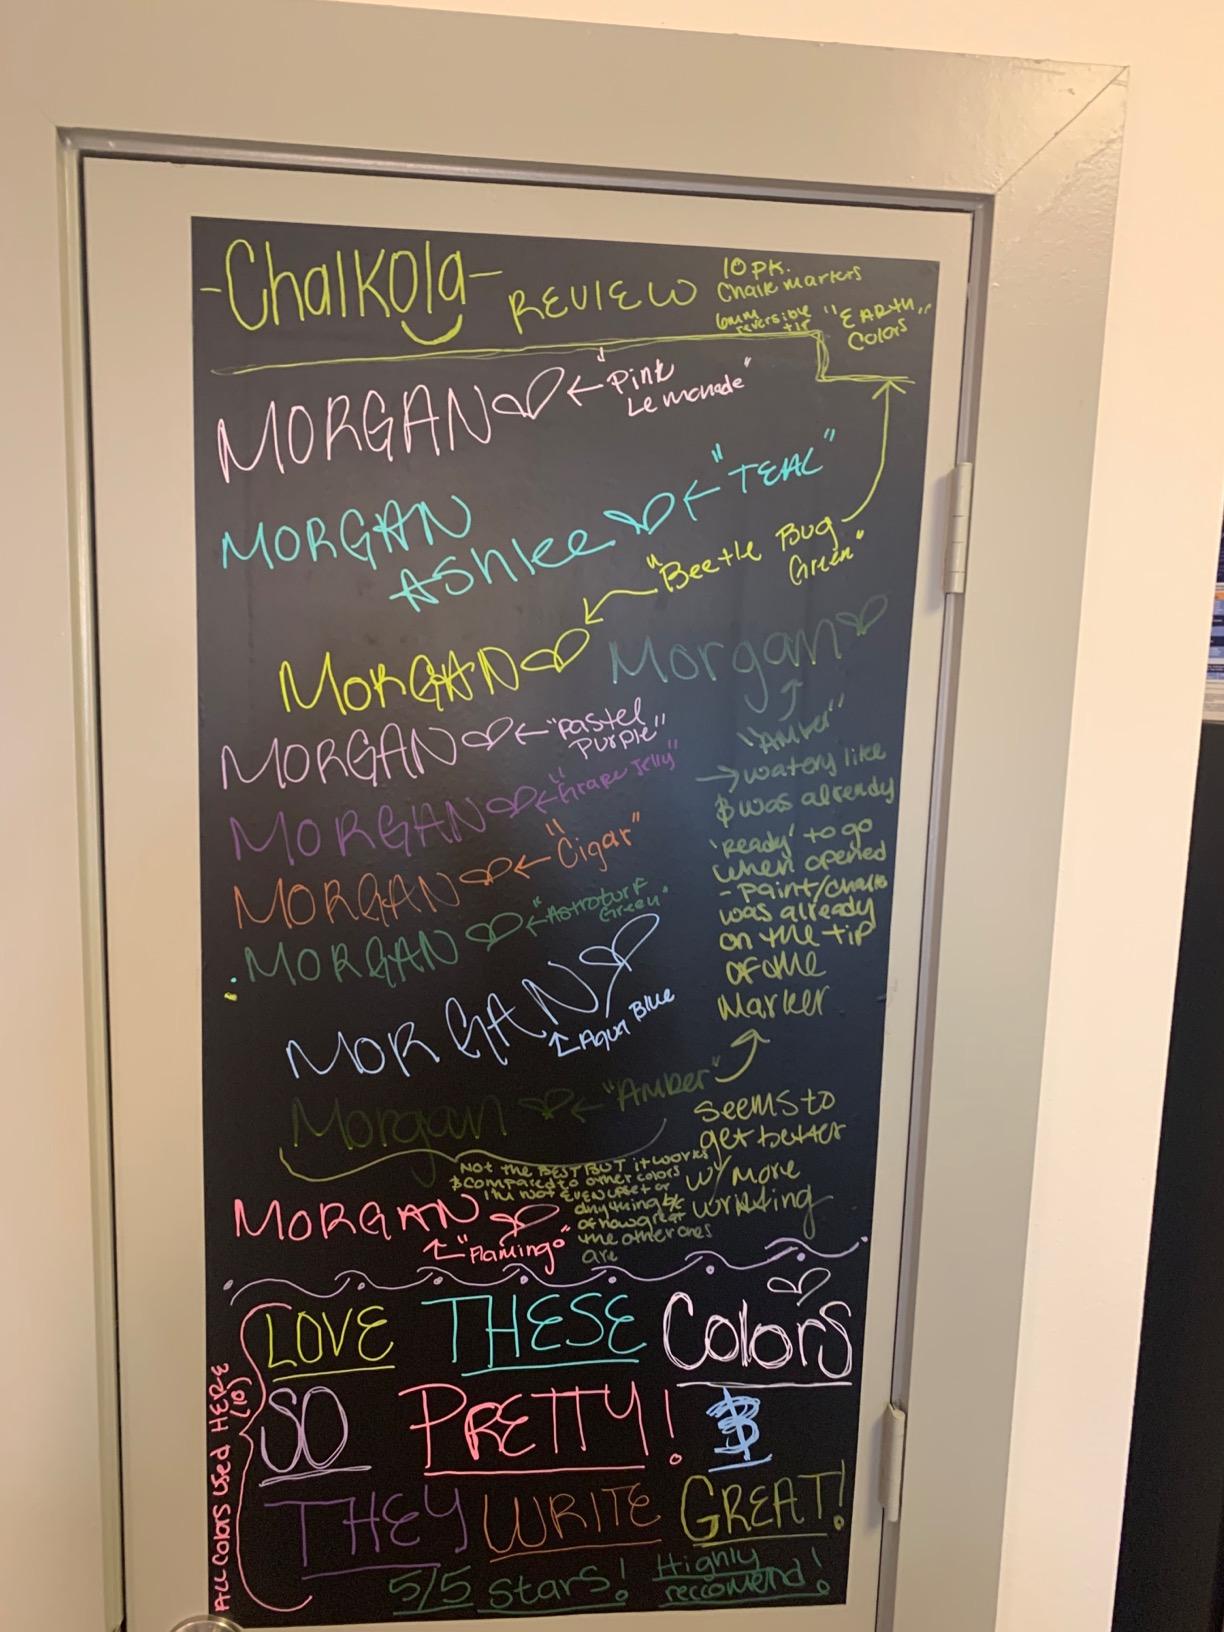 -Chalkola- REVIEW
10 pk.
Chalk markers
6mm reversible tip
"EARTH" Colors
MORGAN ← "Pink
Lemonade"
MORGAN
AShlee ← "TEAL"
"Beetle Bug
Green"
MORGAN
Morgan
MORGAN ← "Pastel
Purple"
MORGAN ← "Grape Jelly"
MORGAN ← "Cigar"
MORGAN ← "Astroturf
Green"
MORGAN
← Aqua Blue
Morgan ← "Amber"
"Amber"
→ watery like
& was already
'ready' to go
when opened
- paint/chalk
was already
on the tip
of the
Marker
Seems to
get better
w/ more
writing
Not the BEST BUT it works
& compared to other colors
I'm not even upset or
anything b/c
of how great
the other ones
are
MORGAN
"Flamingo"
ALL COLORS USED HERE
(10)
LOVE THESE Colors
SO PRETTY! &
THEY WRITE GREAT!
5/5 stars! Highly
reccomend!